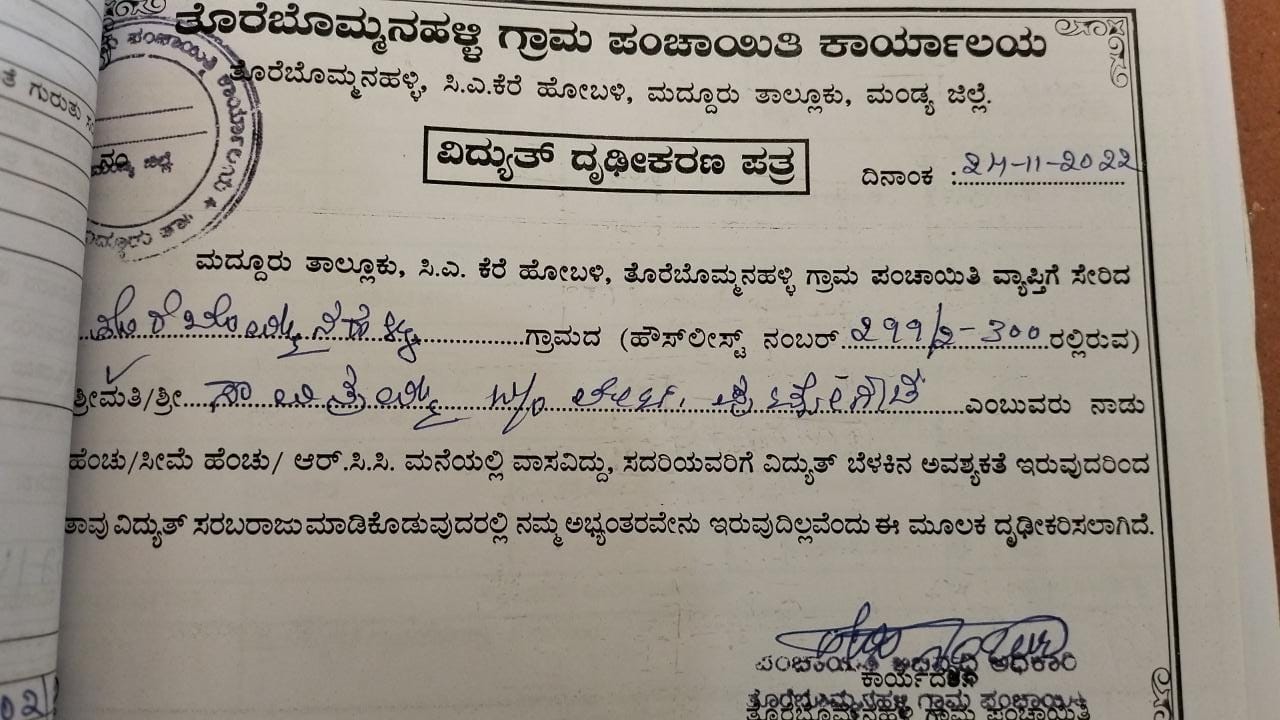 ತೊರೆಬೊಮ್ಮನಹಳ್ಳಿ ಗ್ರಾಮ ಪಂಚಾಯಿತಿ ಕಾರ್ಯಾಲಯ
ತೊರೆಬೊಮ್ಮನಹಳ್ಳಿ, ಸಿ.ಎ.ಕೆರೆ ಹೋಬಳಿ, ಮದ್ದೂರು ತಾಲ್ಲೂಕು, ಮಂಡ್ಯ ಜಿಲ್ಲೆ.
ಪಂಚಾಯಿತಿ ಕಾರ್ಯಾಲಯ
ಜಿಲ್ಲೆ
ತೆ ಗುರುತು
ವಿದ್ಯುತ್ ದೃಢೀಕರಣ ಪತ್ರ
ದಿನಾಂಕ :24-11-2022
ಮದ್ದೂರು ತಾಲ್ಲೂಕು, ಸಿ.ಎ. ಕೆರೆ ಹೋಬಳಿ, ತೊರೆಬೊಮ್ಮನಹಳ್ಳಿ ಗ್ರಾಮ ಪಂಚಾಯಿತಿ ವ್ಯಾಪ್ತಿಗೆ ಸೇರಿದ
ತೊರೆಬೊಮ್ಮನಹಳ್ಳಿ ಗ್ರಾಮದ (ಹೌಸ್‌ಲೀಸ್ಟ್ ನಂಬರ್ 299/2-300 ರಲ್ಲಿರುವ)
ಶ್ರೀಮತಿ/ಶ್ರೀ ಸಾವಿತ್ರಮ್ಮ w/o ಲೇಟ್. ಎಂಬುವರು ನಾಡು
ಹೆಂಚು/ಸೀಮೆ ಹೆಂಚು/ ಆರ್.ಸಿ.ಸಿ. ಮನೆಯಲ್ಲಿ ವಾಸವಿದ್ದು, ಸದರಿಯವರಿಗೆ ವಿದ್ಯುತ್ ಬೆಳಕಿನ ಅವಶ್ಯಕತೆ ಇರುವುದರಿಂದ
ತಾವು ವಿದ್ಯುತ್ ಸರಬರಾಜು ಮಾಡಿಕೊಡುವುದರಲ್ಲಿ ನಮ್ಮ ಅಭ್ಯಂತರವೇನು ಇರುವುದಿಲ್ಲವೆಂದು ಈ ಮೂಲಕ ದೃಢೀಕರಿಸಲಾಗಿದೆ.
ಪಂಚಾಯಿತಿ ಅಭಿವೃದ್ಧಿ ಅಧಿಕಾರಿ
ಕಾರ್ಯದರ್ಶಿ
ತೊರೆಬೊಮ್ಮನಹಳ್ಳಿ ಗ್ರಾಮ ಪಂಚಾಯಿತಿ